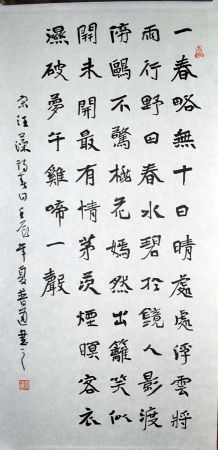 一春略無十日晴處處浮雲將
雨行野田春水碧於鏡人影渡
傍鷗不驚桃花嫣然出籬笑似
開未開最有情茅茨煙暝客衣
濕破夢午雞啼一聲
宋汪藻詩春日壬辰年夏普道書之